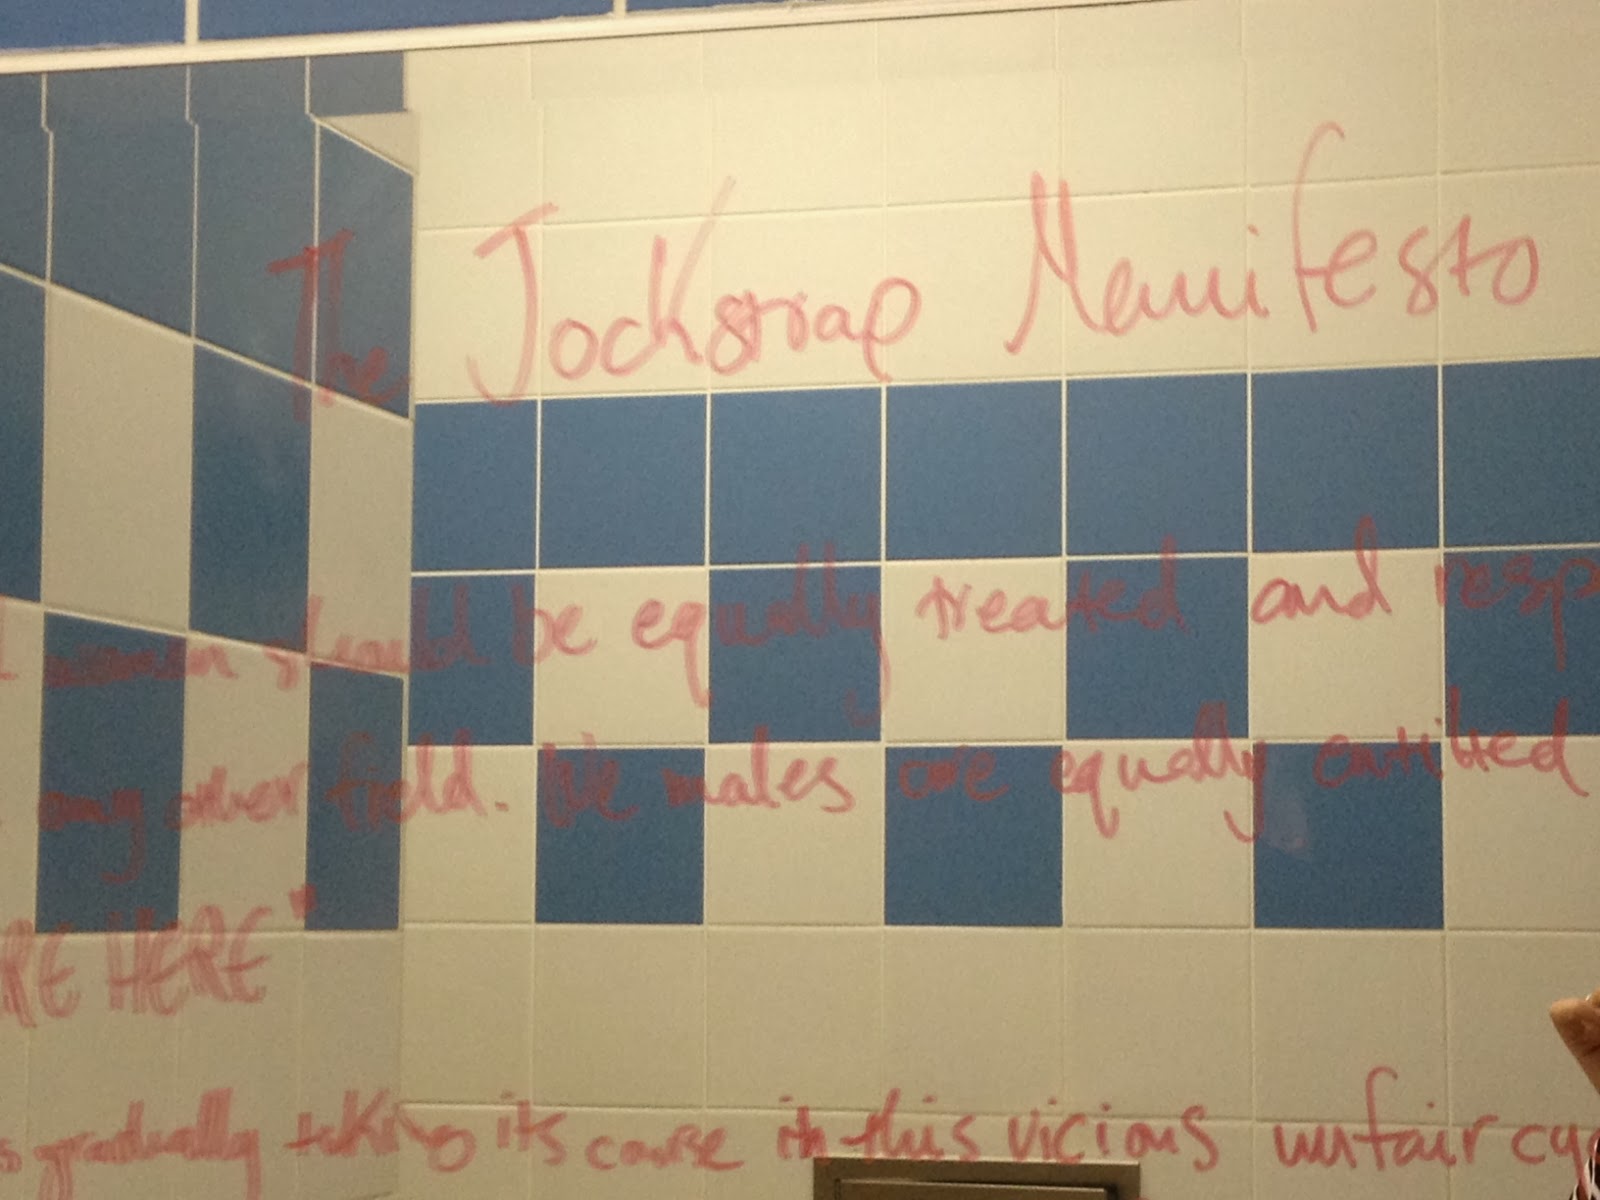 The Jockstrap Manifesto
women should be equally treated and resp
any other field. We males are equally entitled
RE HERE"
gradually taking its course in this vicious unfair cyc